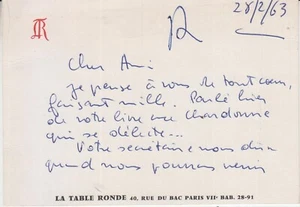 R
28/2/63
Cher Ami
je pense à vous de tout cœur,
faisant mille. Parlé hier
de votre livre avec Chardonne
qui se délecte...
Votre secrétaire nous dira
quand nous pourrons venir
LA TABLE RONDE 40, RUE DU BAC PARIS VIIe BAB. 28-91